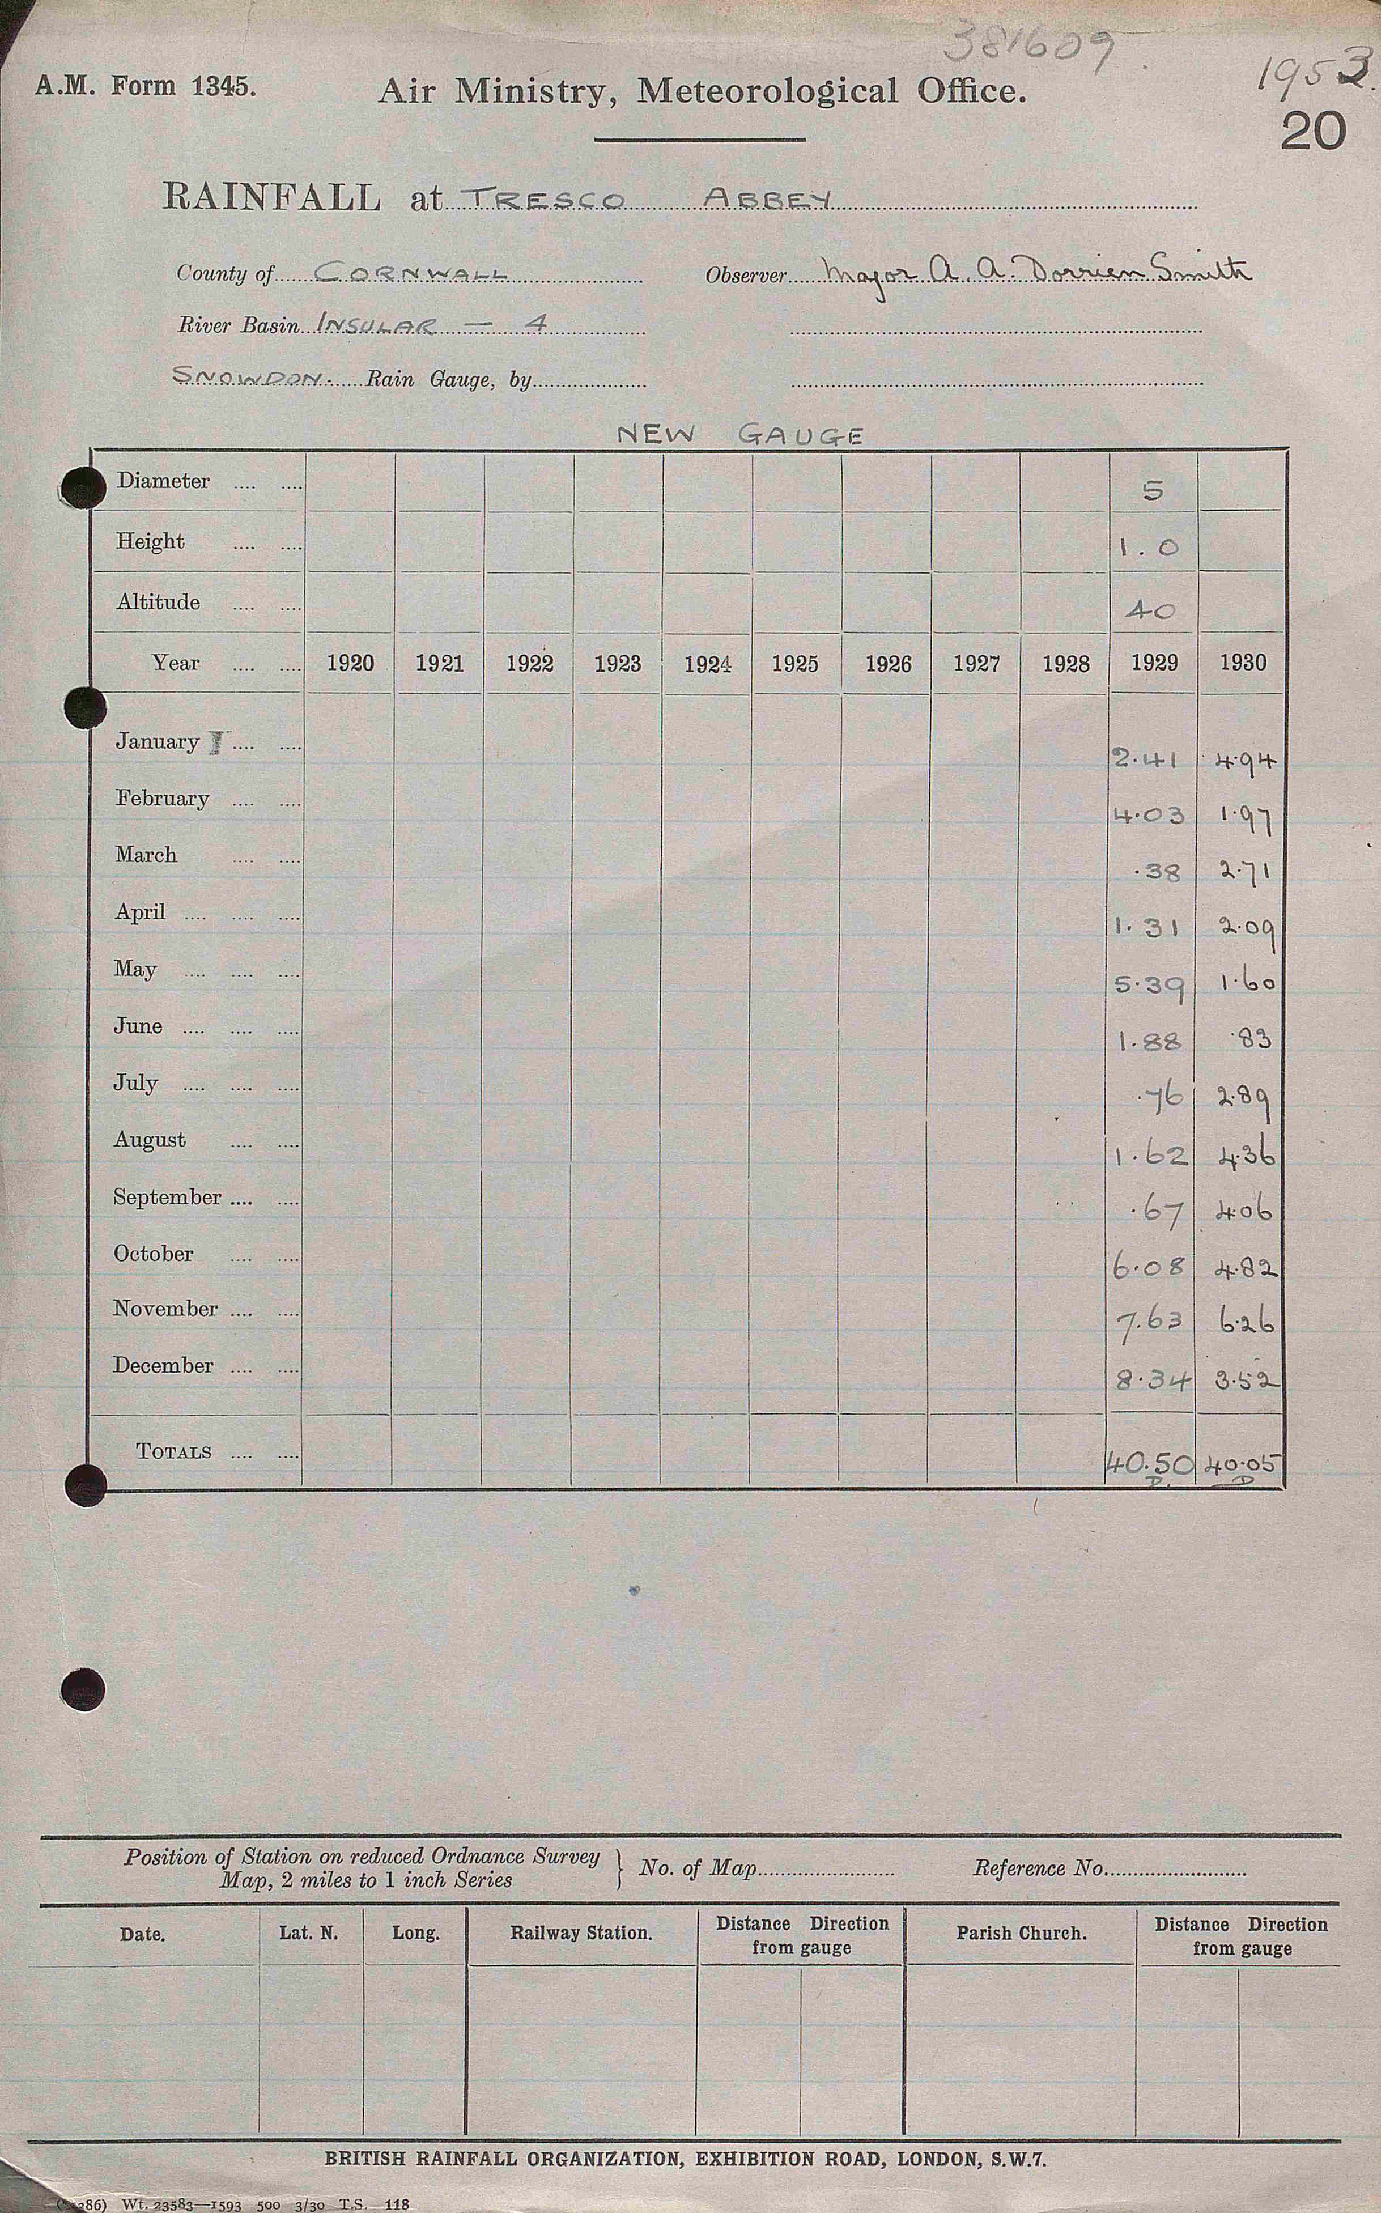 381609
1953.
A.M. Form 1345.
Air Ministry, Meteorological Office.
20
RAINFALL at TRESCO ABBEY
County of CORNWALL Observer Major A. A. Dorrien Smith
River Basin INSULAR — 4
SNOWDON Rain Gauge, by
NEW GAUGE
Diameter 5
Height 1.0
Altitude 40
Year 1920 1921 1922 1923 1924 1925 1926 1927 1928 1929 1930
January 2.41 4.94
February 4.03 1.97
March .38 2.71
April 1.31 2.09
May 5.39 1.60
June 1.88 .83
July .76 2.89
August 1.62 4.36
September .67 4.06
October 6.08 4.82
November 7.63 6.26
December 8.34 3.52
TOTALS 40.50 40.05
Position of Station on reduced Ordnance Survey
Map, 2 miles to 1 inch Series } No. of Map Reference No.
Date. Lat. N. Long. Railway Station. Distance Direction from gauge Parish Church. Distance Direction from gauge
BRITISH RAINFALL ORGANIZATION, EXHIBITION ROAD, LONDON, S.W.7.
286) Wt. 23583—1593 500 3/30 T.S. 118